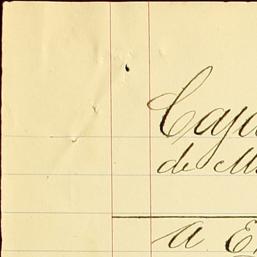 Caja
de M
a E